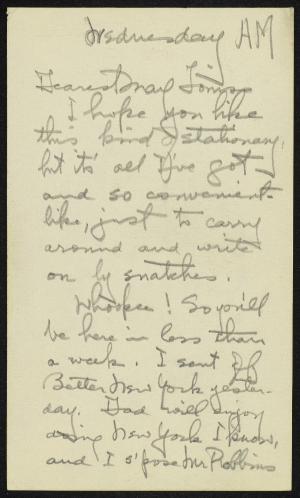 Wednesday AM
Dearest May
I hope you like
this kind of stationary,
but it's all I've got -
and so convenient-
like, just to carry
around and write
on by snatches.
Whoopee! So you'll
be here in less than
a week. I sent
Better New York yester-
day. Dad will enjoy
New York I know,
and I s'pose Mr Robbins